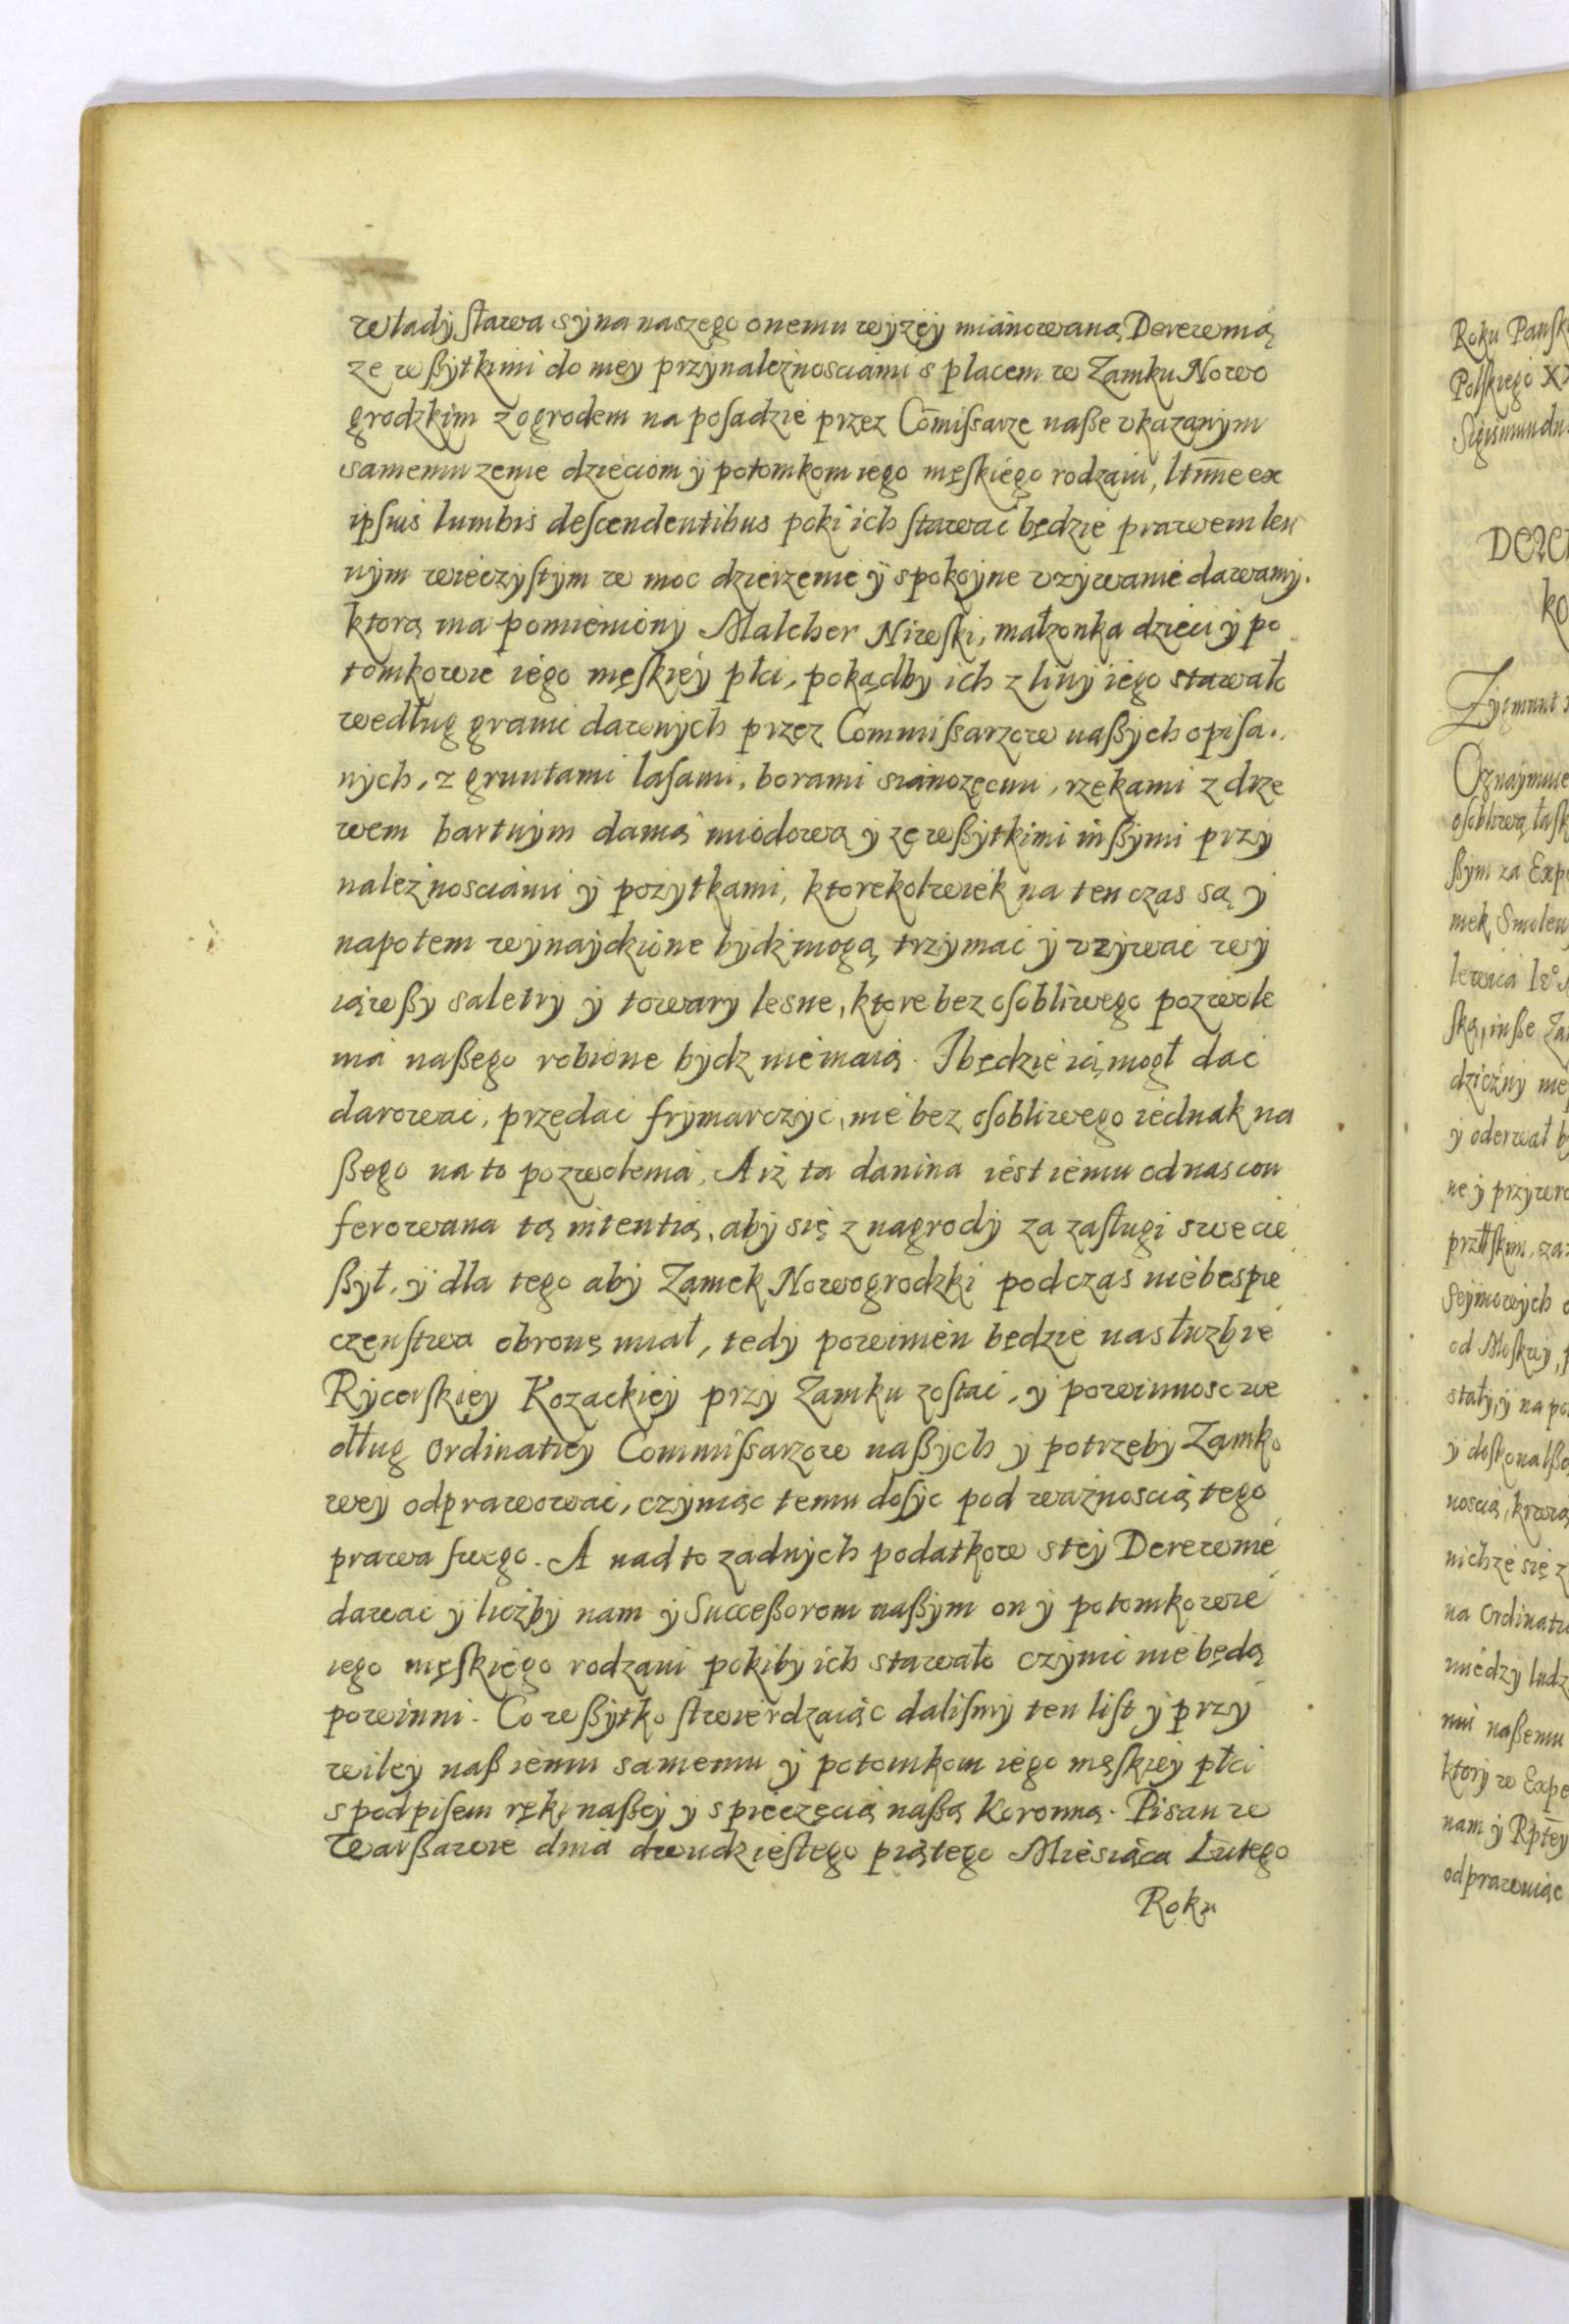 władÿsława sÿna naszego onemu wÿzęÿ mianowaną Derewnią
ze wßÿtkimi do nieÿ przÿnaleznosciami s placem w Zamku Nowo
grodzkim z ogrodem na posadzie przez Com̄issarze naße vkazanÿm
samemu zenie dzieciom ÿ potomkom iego męskiego rodzaiu, ltim̄e ex
ipsius lumbis descendentibus poki ich stawać będzie prawem len
nÿm wieczÿstÿm w moc dzierzenie ÿ spokoÿne vzÿwanie dawamÿ.
ktorą ma pomienionÿ Malcher Niwski, małzonka dzieci ÿ po
tomkowie iego męskieÿ płci, pokądbÿ ich z linÿ iego stawało
według granic dawnÿch przez Commissarzow naßÿch opisa..
nÿch, z gruntami lasami, borami sianozęcmi, rzekami z drze
wem bartnÿm danią miodową ÿ ze wßÿtkimi inßÿmi przÿ
należnosciami ÿ pożÿtkami, ktorekolwiek na ten czas są ÿ
napotem wÿnaÿdzione bÿdź mogą trzÿmać ÿ vzÿwać wÿ
iąwßÿ saletrÿ ÿ towarÿ lesne, ktore bez osobliwego pozwole
nia naßego robione bÿdz nie maią. I będzie ią mogł dać
darować, przedać frÿmarczÿć, nie bez osobliwego iednak na
ßego na to pozwolenia, A iż ta danina iest iemu od nas con
ferowana tą intentią, abÿ się z nagrodÿ za zasługi swe cie
ßÿł, ÿ dla tego abÿ Zamek Nowogrodzki podczas niebespie
czenstwa obronę miał, tedÿ powinien będzie na służbie
Rÿcerskieÿ Kozackieÿ przÿ Zamku zostać, ÿ powinnosc we
dług Ordinatieÿ Commissarzow naßÿch ÿ potrzebÿ Zamko
weÿ odprawować, czÿniąc temu dosÿc pod ważnoscią tego
prawa swego. A nad to żadnÿch podatkow s teÿ Derewnie
dawać ÿ liczbÿ nam ÿ Succeßorom naßÿm on ÿ potomkowie
iego męskiego rodzaiu pokibÿ ich stawało czÿnić nie będą
powinni. Co wßÿtko stwierdzaiąc dalismÿ ten list ÿ przÿ
wileÿ naß iemu samemu ÿ potomkom iego męskieÿ płci
s podpisem ręki naßeÿ ÿ s pieczęcią naßą Koronną. Pisan w
Warßawie dnia dwudziestego piątego Miesiąca Lutego
Roku
Roku Pansk
Polskiego XX
Sigismundu
DERE
KO
Zÿgmunt
Oznaÿmuie
osobliwą łask
ßÿm za Expe
mek Smolen
ską, inße Za
ÿ oderwał b
ne ÿ przÿwro
Seÿmowÿch
od Moskwÿ,
stałÿ, ÿ na po
ÿ doskonalßo
noscią, krwią
nichże się z
na Ordinatu
miedzÿ ludz
nii naßemu
ktorÿ w Expe
nam ÿ Rpte̅ÿ
odprawuiąc